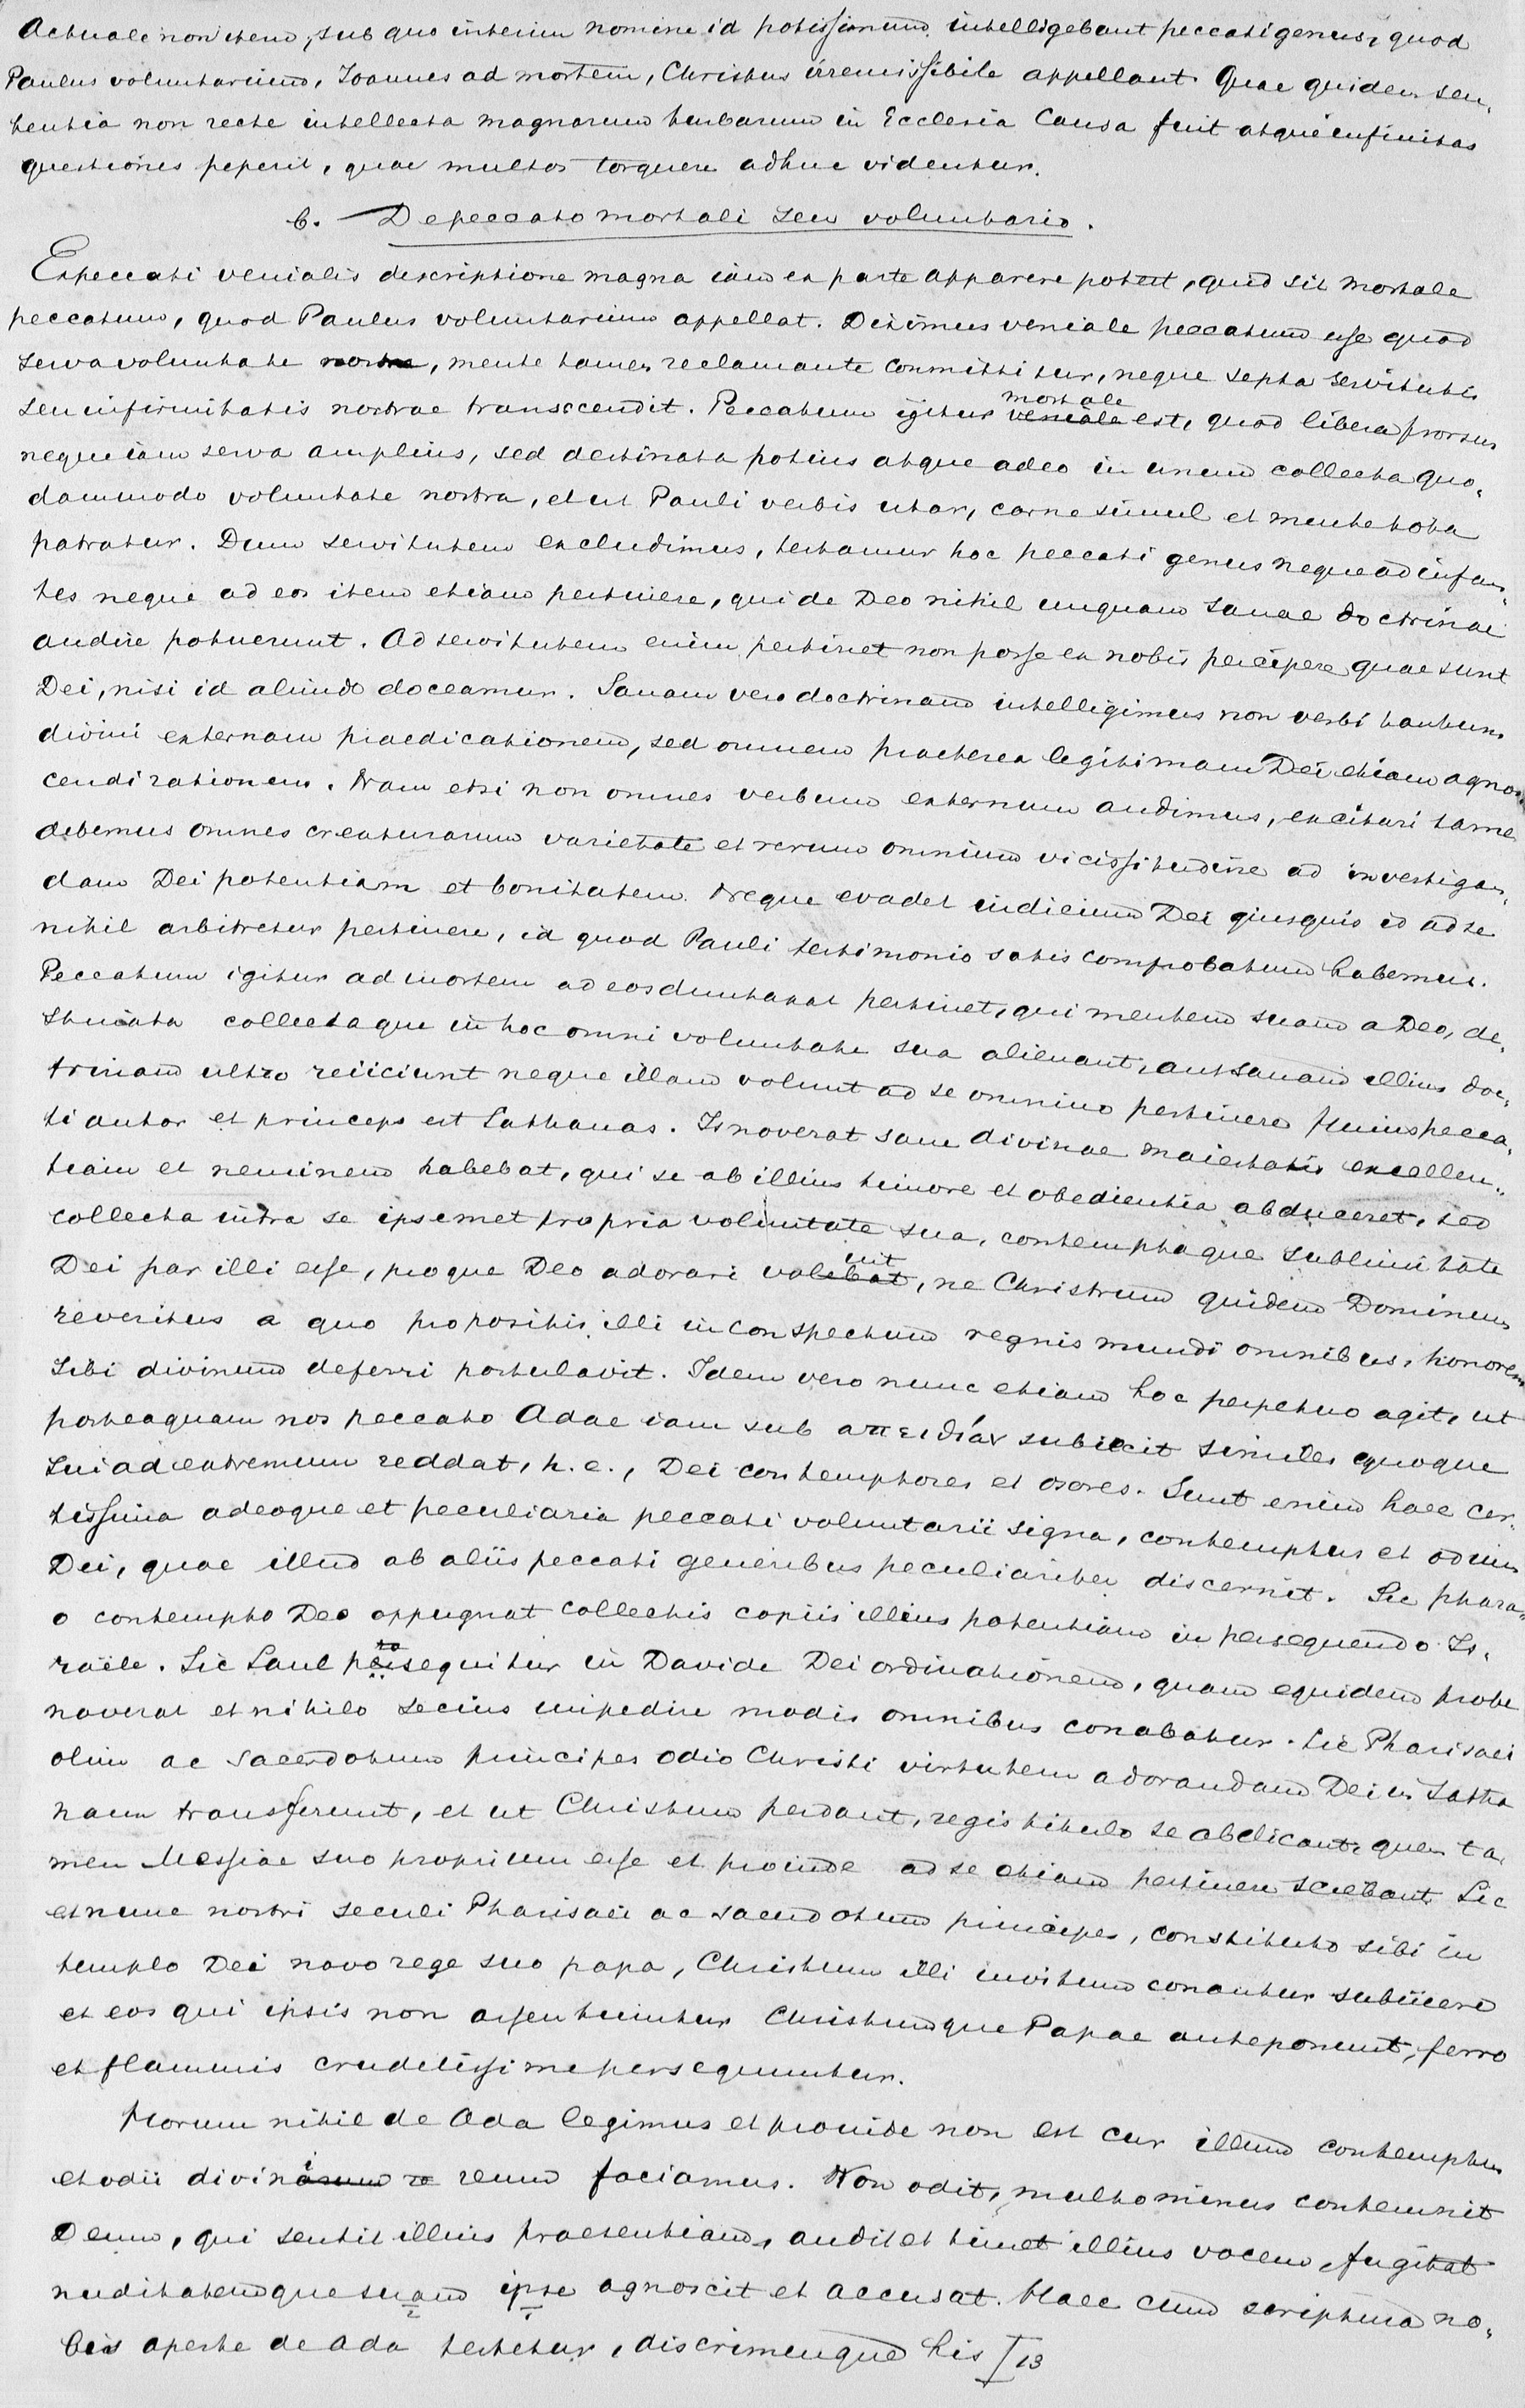 Actuale non item, sub quo interim nomine id potissimum intelligebant peccati genus, quod
Paulus voluntarium, Joannes ad mortem, Christus irremissibile appellant. Quae quidem sen-
tentia non recte intellecta magnarum turbarum in Ecclesia Causa fuit atque infinitas
questiones peperit, quae multos torquere adhuc videntur.
6. De peccato mortali seu voluntario.
Ex peccati venialis descriptione magna iam ex parte apparere potest, quid sit mortale
peccatum, quod Paulus voluntarium appellat. Diximus veniale peccatum esse quod
serva voluntate nostra, mente tamen reclamante committitur, neque septa servitutis
seu infirmitatis nostrae transscendit. Peccatum igitur veniale mortale est, quod libera prorsus
neque iam serva amplius, sed destinata potius atque adeo in unum collecta quo-
dammodo voluntate nostra, et ut Pauli verbis utar, carne simul et mente tota
patratur. Dum servitutem excludimus, testamur hoc peccati genus neque ad infan-
tes neque ad eos item etiam pertinere, qui de Deo nihil unquam sanae doctrinae
audire potuerunt. Ad servitutem enim pertinet non posse ex nobis percipere quae sunt
Dei, nisi id aliundo doceamur. Sanam vero doctrinam intelligimus non verbi tantum
divini externam praedicationem, sed omnem praeterea legitimam Dei etiam agnos-
cendi rationem. Nam etsi non omnes verbum externum audimus, excitari tamen
debemus omnes creaturarum varietate et rerum omnium vicissitudine ad investigan-
dam Dei potentiam et bonitatem. Neque evadet iudicium Dei quisquis id ad se
nihil arbitretur pertinere, id quod Pauli testimonio satis comprobatum habemus.
Peccatum igitur ad mortem ad eos dumtaxat pertinet, qui mentem suam a Deo, de-
stinata collectaque in hoc omni voluntate sua alienant, aut sanam illius doc-
trinam ultro reiiciunt neque illam volunt ad se omnino pertinere. Huius pecca-
ti autor et princeps est Sathanas. Is noverat sane divinae maiestatis excellen-
tiam et neminem habebat, qui se ab illius timore et obedientia abduceret, sed
collecta intra se ipsemet propria voluntate sua, contemptaque sublimitate
Dei par illi esse, proque Deo adorari volebat uit, ne Christum quidem Dominum
reveritus a quo propositis illi in conspectum regnis mundi omnibus, honorem
sibi divinum deferri postulavit. Idem vero nunc etiam hoc perpetuo agit, ut
posteaquam nos peccato Adae iam sub απειθίαν subiecit similes quoque
sui ad extremum reddat, h. e., Dei contemptores et osores. Sunt enim haec cer-
tissima adeoque et peculiaria peccati voluntarii signa, contemptus et odium
Dei, quae illud ab aliis peccati generibus peculiariter discernit. Sic phara-
o contempto Deo oppugnat collectis copiis illius potentiam in persequendo Is-
raële. Sic Saul persequitur in Davide Dei ordinationem, quam equidem probe
noverat et nihilo secius impedire modis omnibus conabatur. Sic Pharisaei
olim ac sacerdotum principes odio Christi virtutem adorandam Dei in Satha
nam transferunt, et ut Christum perdant, regis titulo se abdicant, quem ta
men Messiae suo proprium esse et proinde ad se etiam pertinere sciebant. Sic
et nunc nostri seculi Pharisaei ac sacerdotum principes, constituto sibi in
templo Dei novo rege suo papa, Christum illi invitum conantur subiicere
et eos qui ipsis non assentiuntur Christumque Papae anteponunt, ferro
et flammis crudelissime persequuntur.
Horum nihil de Ada legimus et proinde non est cur illum contemptus
et odii divinarum i re reum faciamus. Non odit, multo minus contemnit
Deum, qui sentit illius praesentiam, audit et timet illius vocem, fugitat
nuditatemque suam ipse agnoscit et accusat. Haec cum scriptura no-
bis aperte de Ada testetur, discrimenque his 13